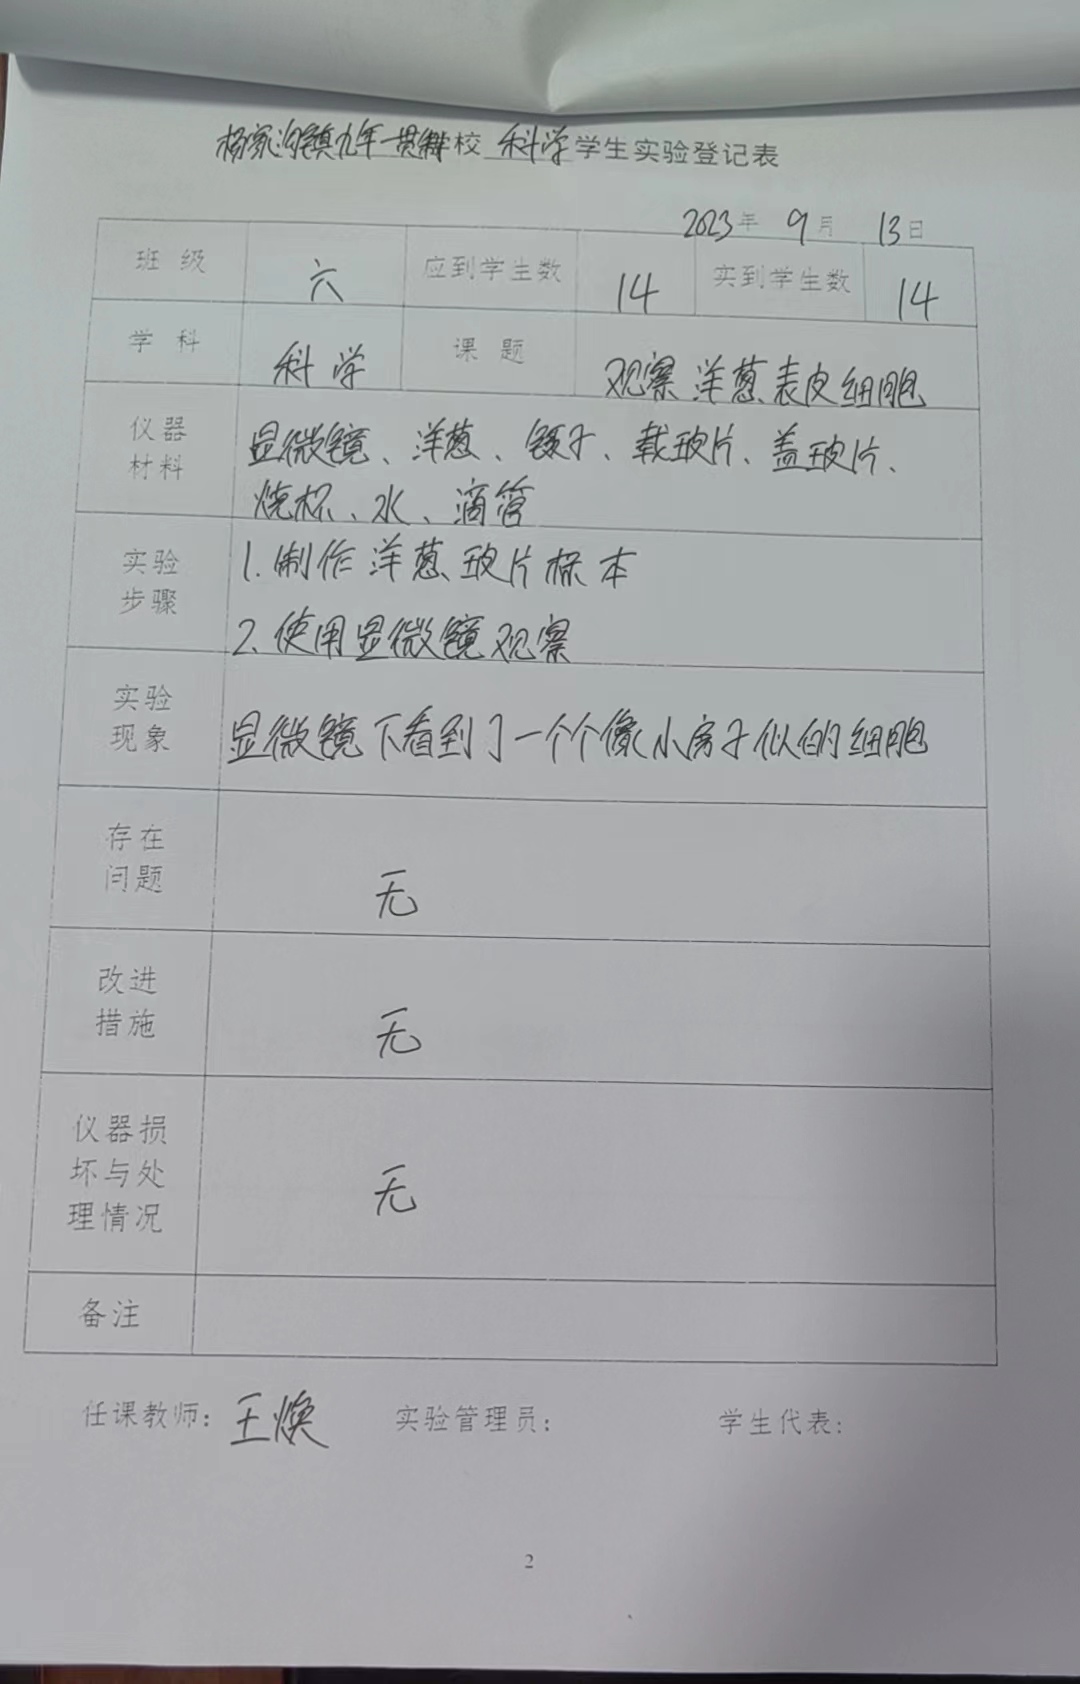 杨家沟镇九年一贯制学校 科学学生实验登记表
2023年 9月 13日
班 级 六 应到学生数 14 实到学生数 14
学 科 科学 课 题 观察洋葱表皮细胞
仪器材料 显微镜、洋葱、镊子、载玻片、盖玻片、
烧杯、水、滴管
实验步骤 1.制作洋葱玻片标本
2.使用显微镜观察
实验现象 显微镜下看到了一个个像小房子似的细胞
存在问题 无
改进措施 无
仪器损坏与处理情况 无
备注
任课教师：王焕 实验管理员： 学生代表：
2